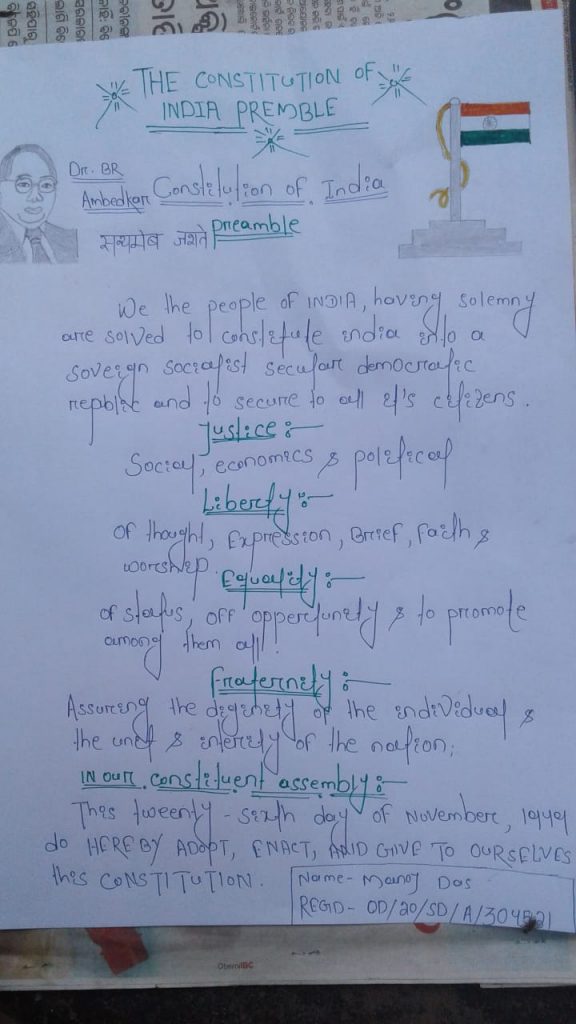 THE CONSTITUTION OF
INDIA PREMBLE
Dr. BR
Ambedkar Constitution of India
सत्यमेब जयते Preamble
We the people of INDIA, having solemny
are solved to constitute india into a
soveign socialist secular democratic
repblic and to secure to all it's citizens.
Justice :-
Social, economics & political
Liberty :-
Of thought, Expression, Brief, Faith &
worship.
Equality :-
Of status, off oppertunety & to promote
among them all.
Fraternity :-
Assuring the diginety of the individual &
the unet & interety of the nation;
IN our constituent assembly :-
This tweenty-sixth day of November, 1949
do HEREBY ADOPT, ENACT, AND GIVE TO OURSELVES
this CONSTITUTION.
Name- Manoj Das
REGD- OD/20/SD/A/304521